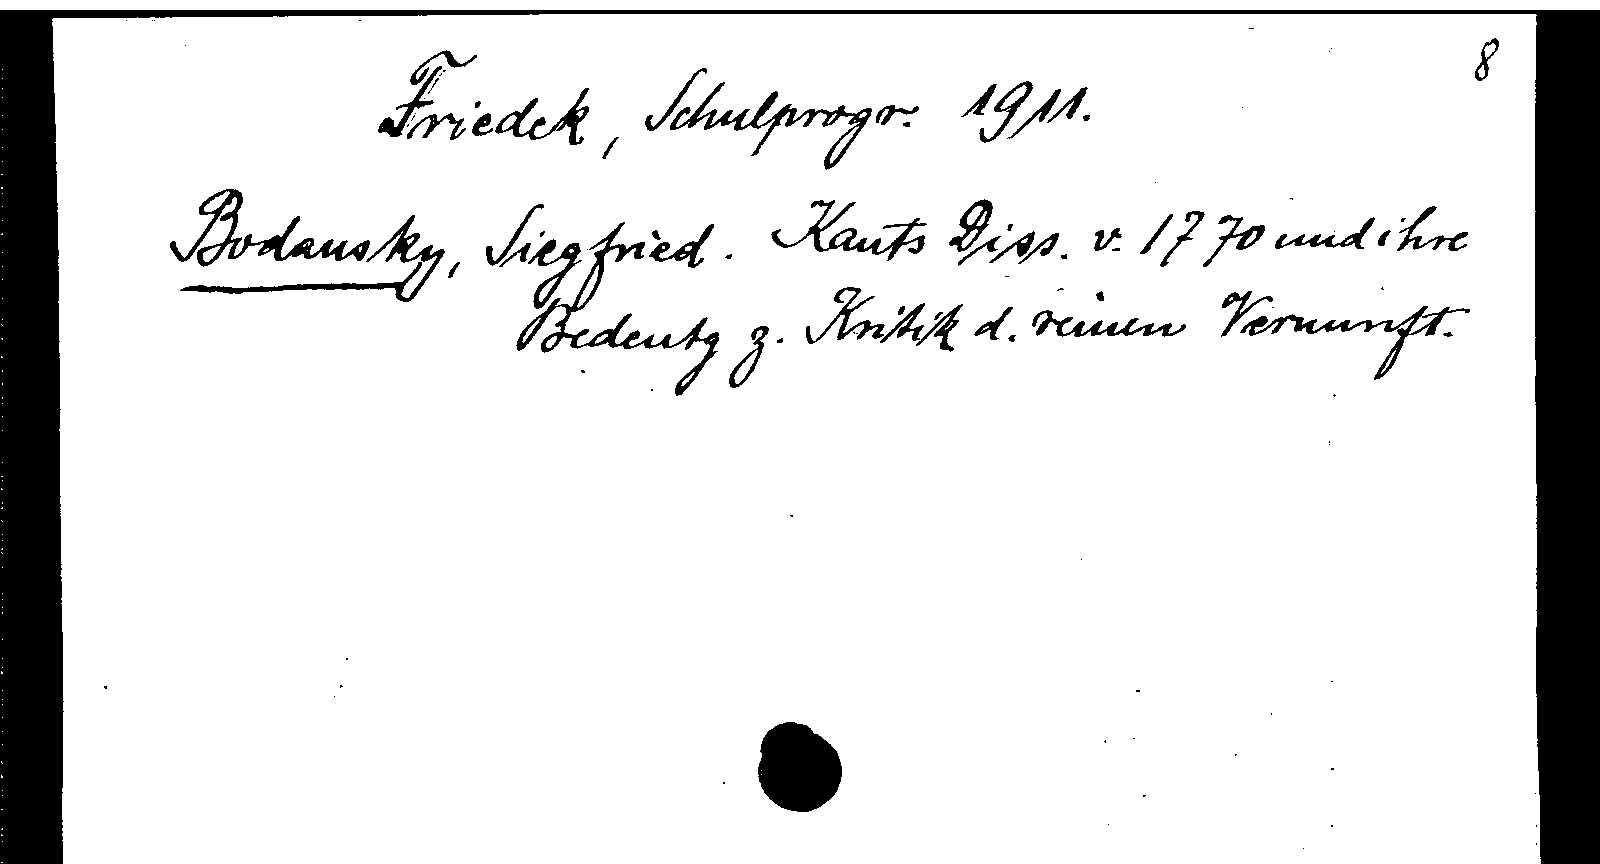 8
Friedek, Schulprogr. 1911.
Bodansky, Siegfried. Kants Diss. v. 1770 und ihre
Bedeutg z. Kritik d. reinen Vernunft.